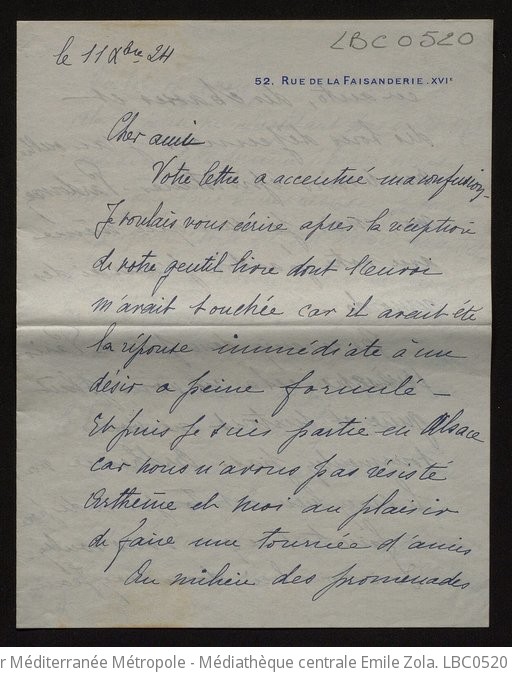 le 11 Xbre 24
LBC0520
52, RUE DE LA FAISANDERIE. XVIE
Cher ami
Votre lettre a accentué ma confusion_
Je voulais vous écrire après la réception
de votre gentil livre dont l'envoi
m'avait touchée car il avait été
la réponse immédiate à un
désir a peine formulé _
Et puis je suis partie en Alsace
car nous n'avons pas résisté
Arthème et moi au plaisir
de faire une tournée d'amis
Au milieu des promenades
r Méditerranée Métropole - Médiathèque centrale Emile Zola. LBC0520